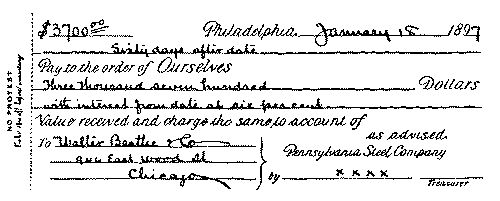 $3700.00 Philadelphia, January 18 1897
Sixty days after date
Pay to the order of Ourselves
Three thousand seven hundred Dollars
with interest from date at six per cent
Value received and charge the same to account of
To Walter Beattie & Co as advised.
East Wood St Pennsylvania Steel Company
Chicago by x x x x
Treasurer
NO PROTEST